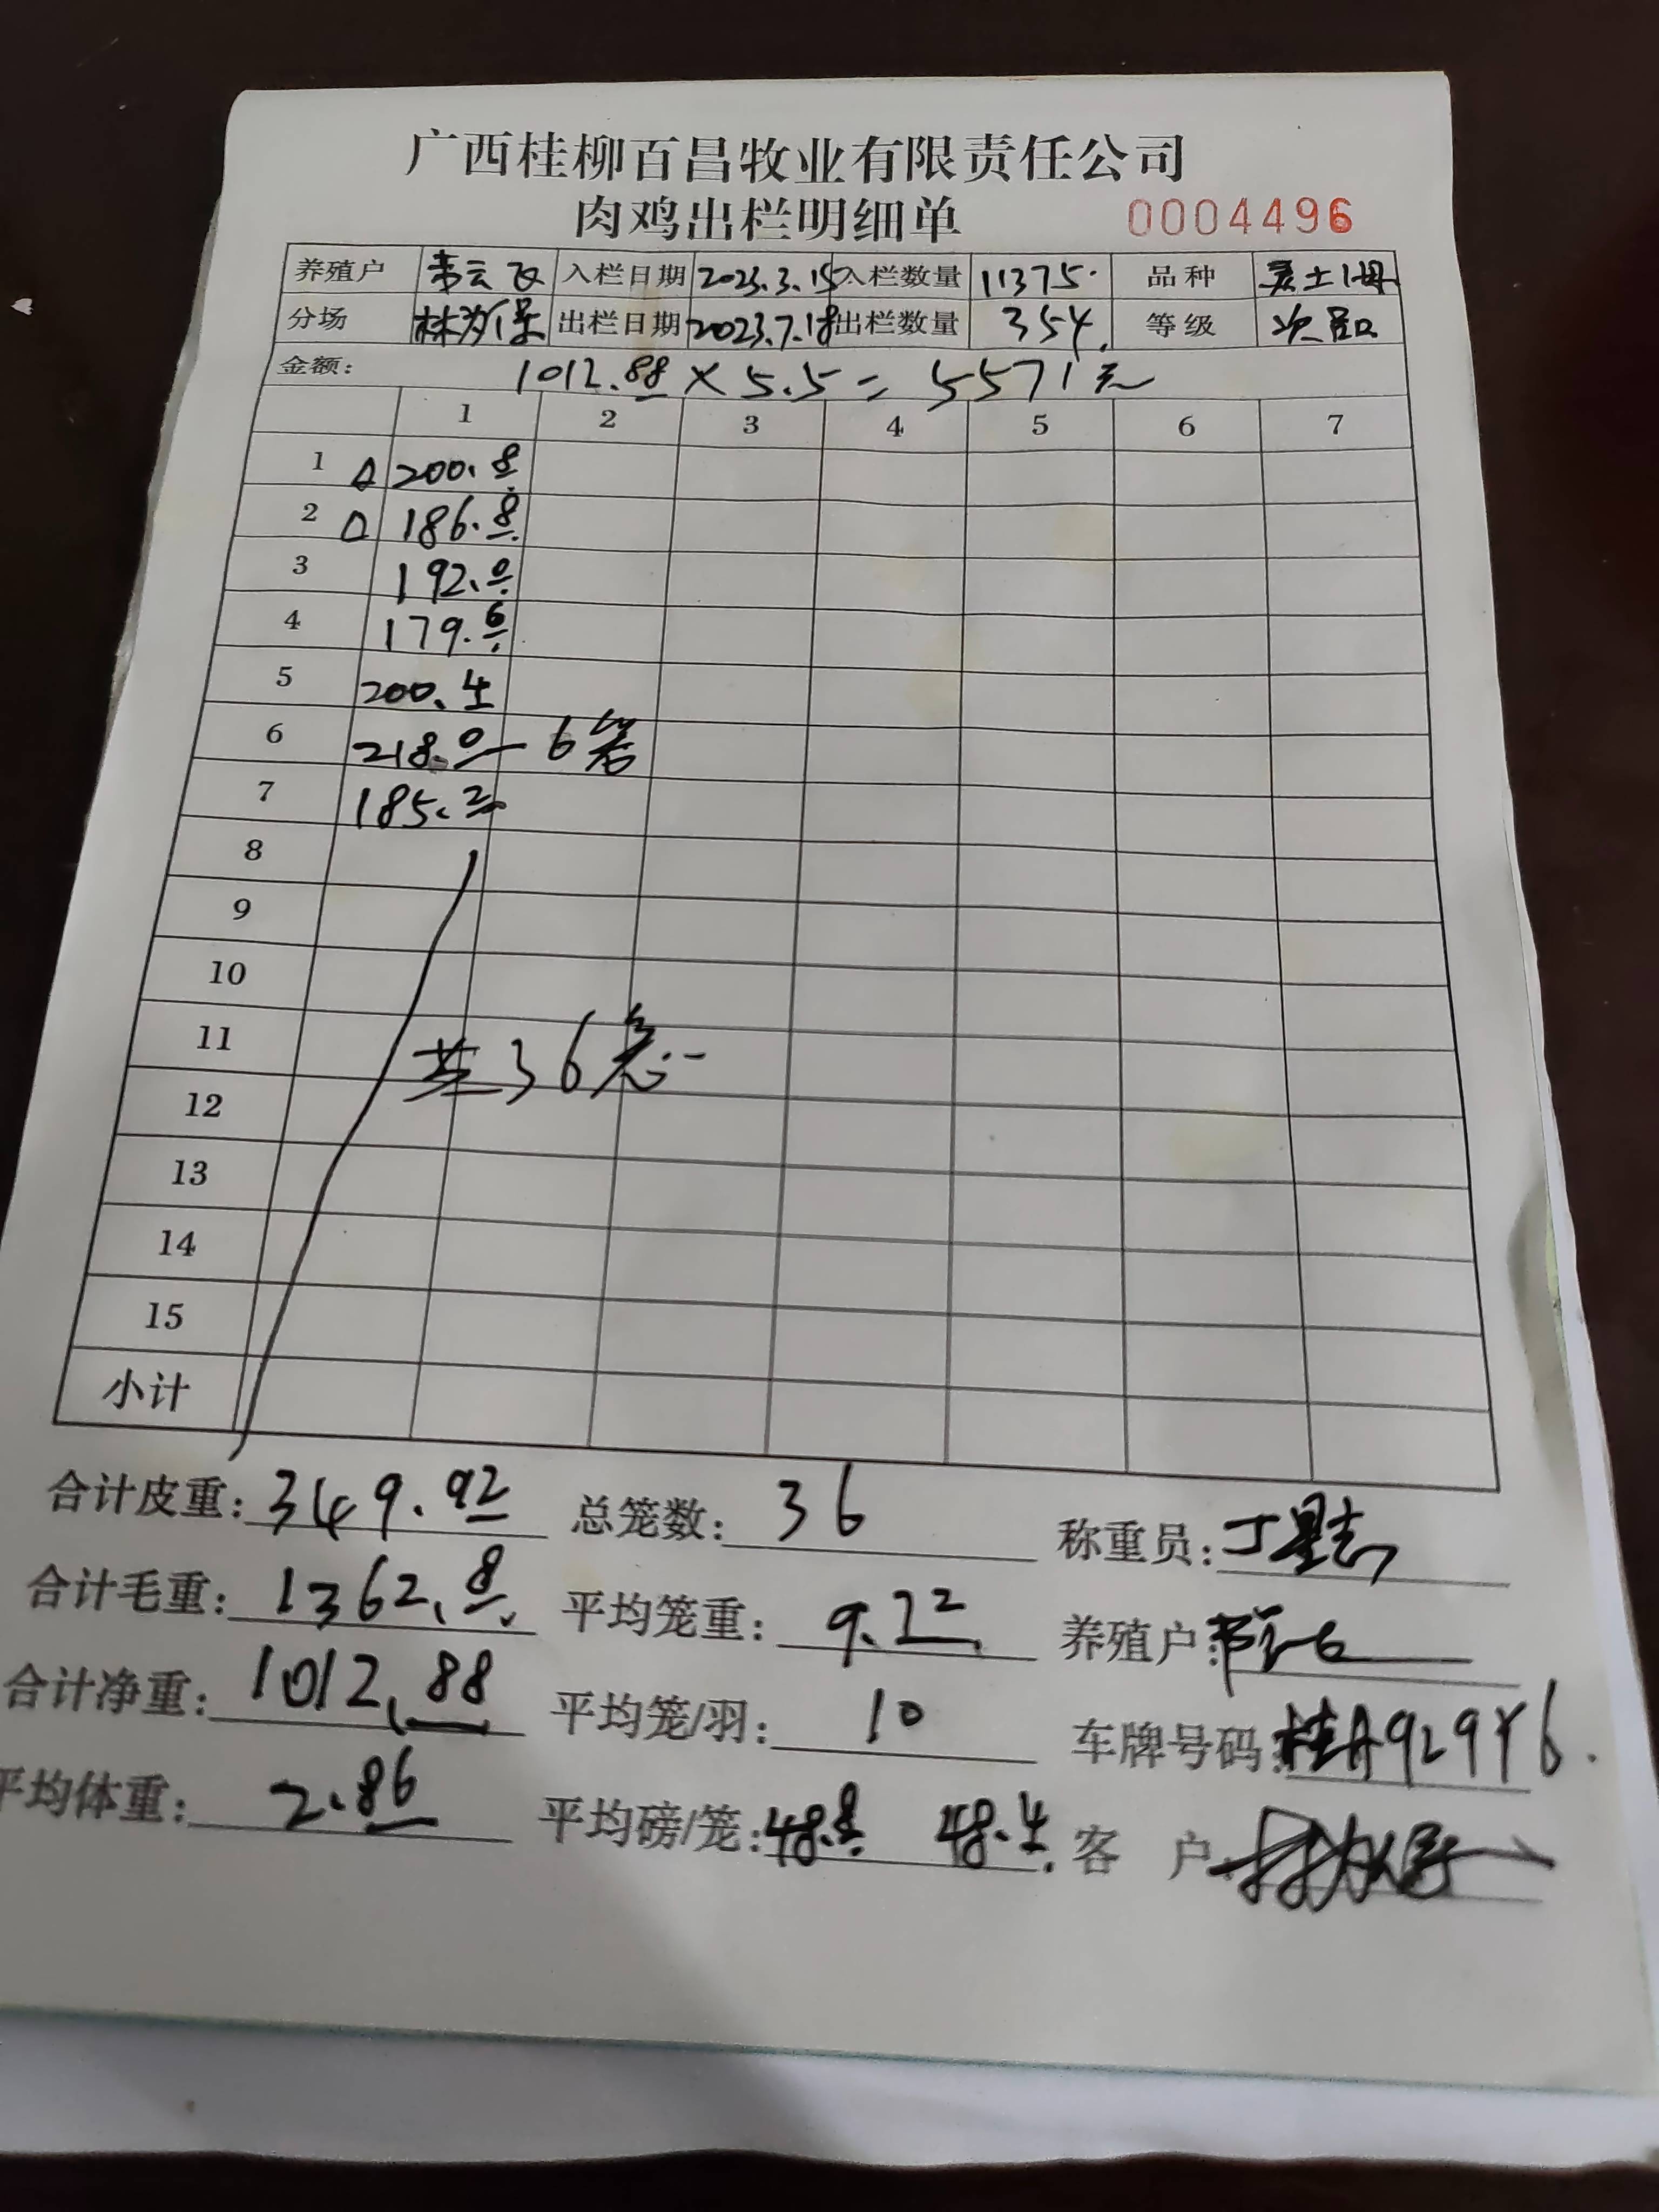 广西桂柳百昌牧业有限责任公司
肉鸡出栏明细单 0004496
养殖户 韦云飞 入栏日期 2023.3.15 入栏数量 11375. 品种 土
分场 林为保 出栏日期 2023.7.18 出栏数量 354. 等级 次品
金额: 1012.88 × 5.5 = 5571元
1 2 3 4 5 6 7
1 △ 200.8
2 △ 186.8
3 192.0
4 179.6
5 200.4
6 218.0 — 6笼
7 185.2
8
9
10
11 共36笼
12
13
14
15
小计
合计皮重: 349.92 总笼数: 36 称重员: 丁
合计毛重: 1362.8 平均笼重: 9.72 养殖户:
合计净重: 1012.88 平均笼/羽: 10 车牌号码: 桂A929Y6.
平均体重: 2.86 平均磅/笼: 48.8 48.4 客 户: